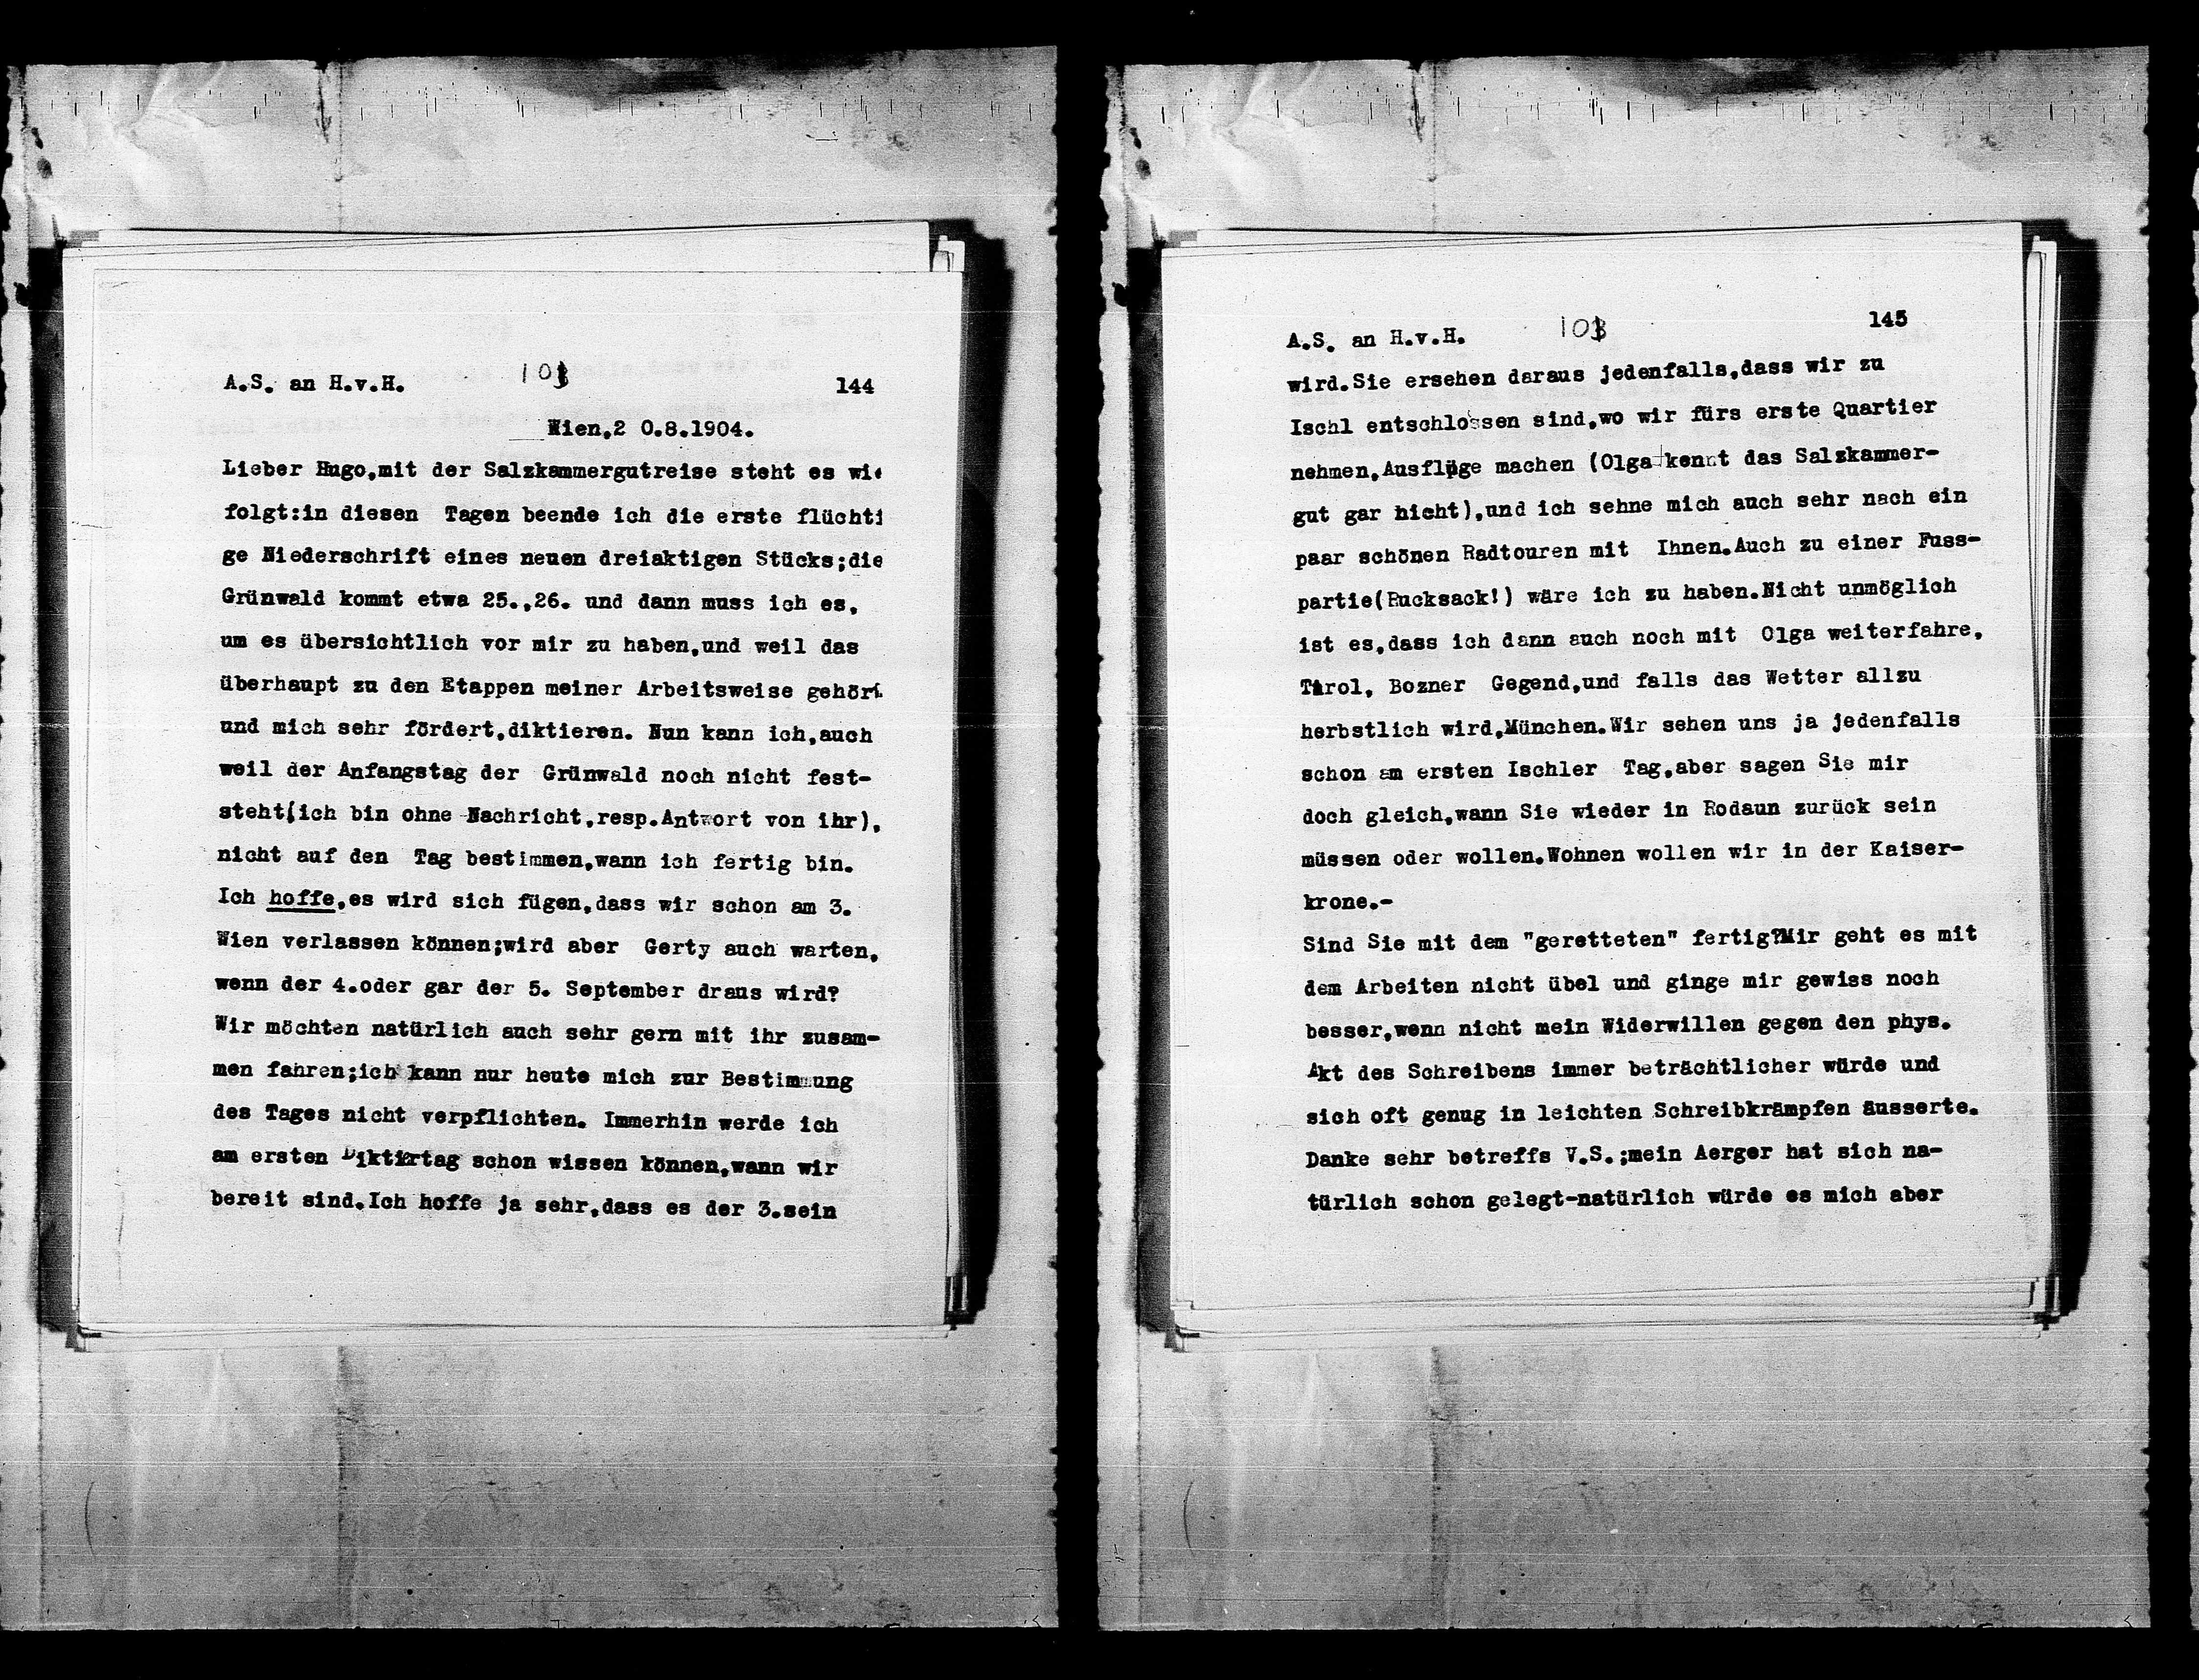 A.S. an H.v.H. 103 144
Wien,2 0.8.1904.
Lieber Hugo,mit der Salzkammergutreise steht es wie
folgt:in diesen Tagen beende ich die erste flüchti
ge Niederschrift eines neuen dreiaktigen Stücks;die
Grünwald kommt etwa 25.,26. und dann muss ich es,
um es übersichtlich vor mir zu haben,und weil das
überhaupt zu den Etappen meiner Arbeitsweise gehört
und mich sehr fördert,diktieren. Nun kann ich,auch
weil der Anfangstag der Grünwald noch nicht fest-
steht(ich bin ohne Nachricht,resp.Antwort von ihr),
nicht auf den Tag bestimmen,wann ich fertig bin.
Ich hoffe,es wird sich fügen,dass wir schon am 3.
Wien verlassen können;wird aber Gerty auch warten,
wenn der 4.oder gar der 5. September draus wird?
Wir möchten natürlich auch sehr gern mit ihr zusam-
men fahren;ich kann nur heute mich zur Bestimmung
des Tages nicht verpflichten. Immerhin werde ich
am ersten Diktirtag schon wissen können,wann wir
bereit sind.Ich hoffe ja sehr,dass es der 3.sein
A.S. an H.v.H. 103 145
wird.Sie ersehen daraus jedenfalls,dass wir zu
Ischl entschlossen sind,wo wir fürs erste Quartier
nehmen,Ausflüge machen (Olga kennt das Salzkammer-
gut gar nicht),und ich sehne mich auch sehr nach ein
paar schönen Radtouren mit Ihnen.Auch zu einer Fuss-
partie(Rucksack!) wäre ich zu haben.Nicht unmöglich
ist es,dass ich dann auch noch mit Olga weiterfahre,
Tirol, Bozner Gegend,und falls das Wetter allzu
herbstlich wird,München.Wir sehen uns ja jedenfalls
schon am ersten Ischler Tag,aber sagen Sie mir
doch gleich,wann Sie wieder in Rodaun zurück sein
müssen oder wollen.Wohnen wollen wir in der Kaiser-
krone.-
Sind Sie mit dem "geretteten" fertig?Mir geht es mit
dem Arbeiten nicht übel und ginge mir gewiss noch
besser,wenn nicht mein Widerwillen gegen den phys.
Akt des Schreibens immer beträchtlicher würde und
sich oft genug in leichten Schreibkrämpfen äusserte.
Danke sehr betreffs V.S.;mein Aerger hat sich na-
türlich schon gelegt-natürlich würde es mich aber